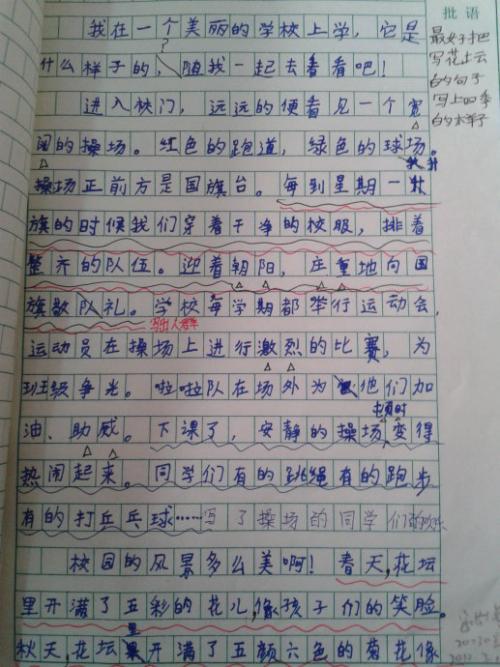 我在一个美丽的学校上学,它是
什么样子的,随我一起去看看吧!
进入校门,远远的便看见一个宽
阔的操场。红色的跑道,绿色的球场。
操场正前方是国旗台。每到星期一升
旗的时候我们穿着干净的校服,排着
整齐的队伍。迎着朝阳,庄重地向国
旗敬队礼。学校每学期都举行运动会,
写出人群
运动员在操场上进行激烈的比赛,为
班级争光。啦啦队在场外为他们加
顿时
油、助威。下课了,安静的操场变得
热闹起来。同学们有的跳绳有的跑步
有的打乒乓球……写了操场的同学们的
校园的风景多么美啊!春天,花坛
里开满了五彩的花儿,像孩子们的笑脸。
里
秋天,花坛开满了五颜六色的菊花像
批语
最好把
写花坛
的句子
写上四季
的样子